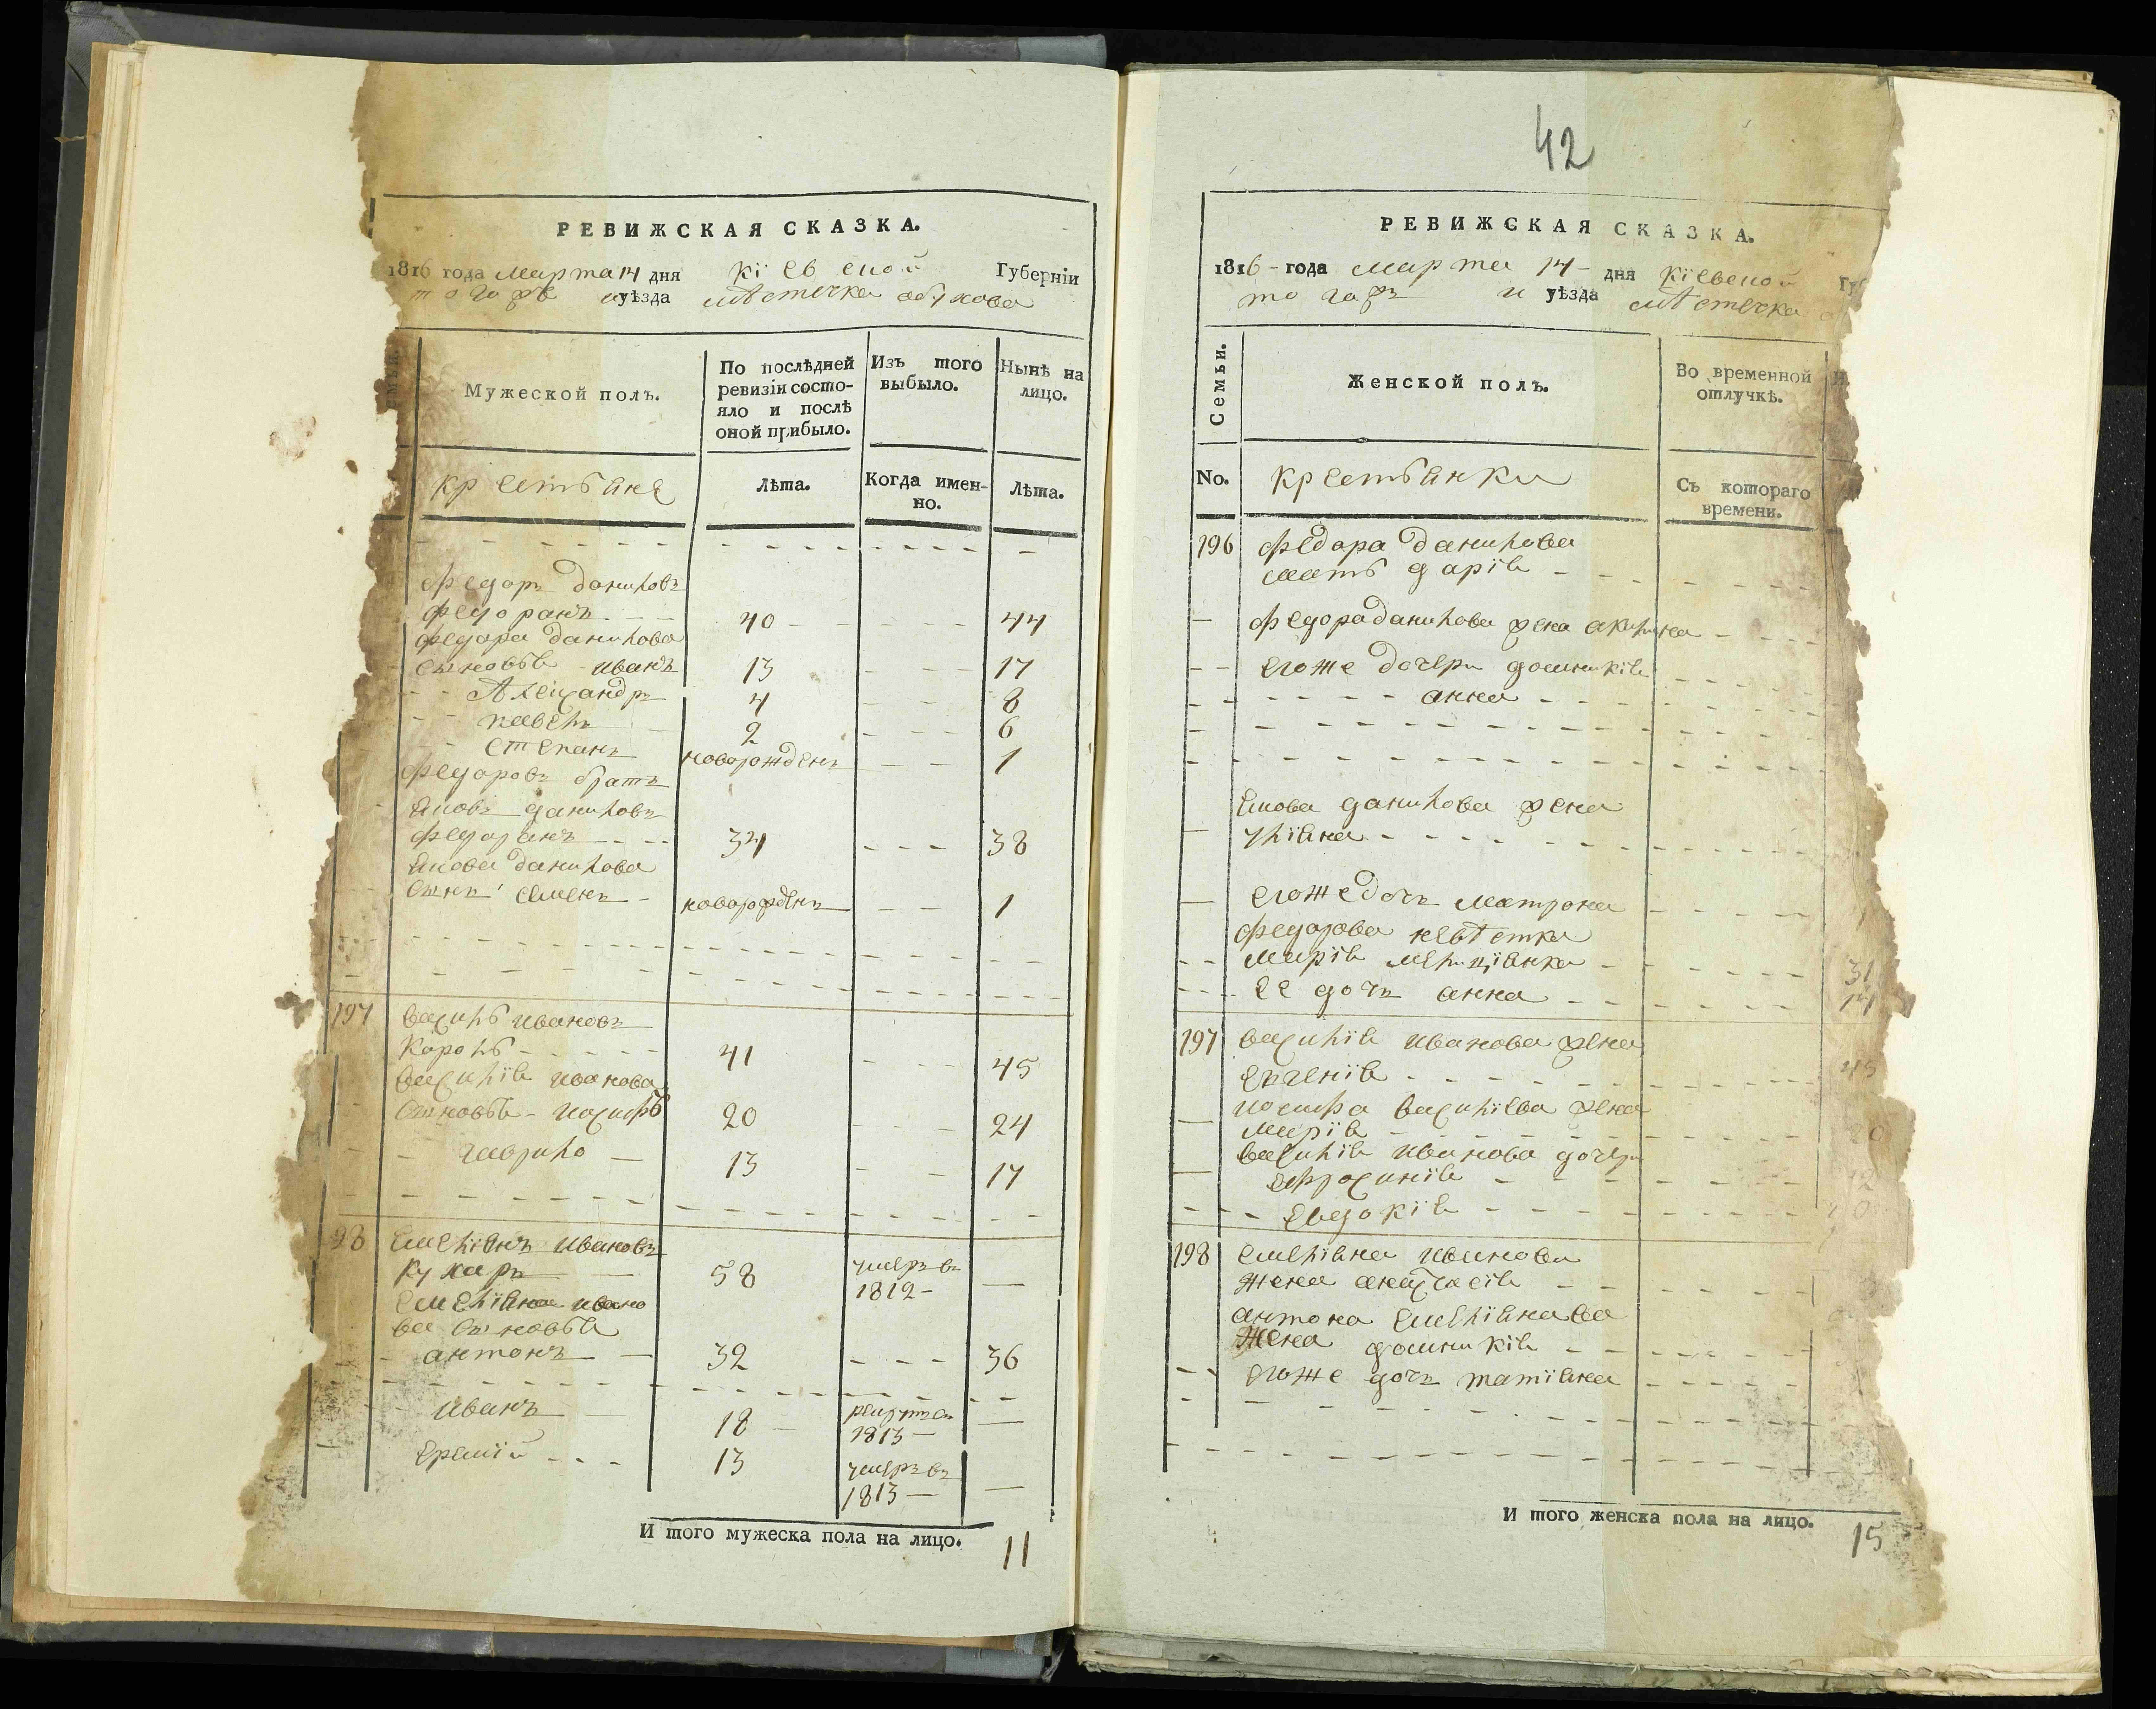 РЕВИЖСКАЯ СКАЗКА.
1816 года марта 14 дня кіевской Губерніи
тогожъ уѣзда мѣстечка обухова
Мужеской полъ.
По послѣдней ревизіи состо-
яло и послѣ
оной прибыло.
Изъ того
выбыло.
Нынѣ на
лицо.
крестьяне
Лѣта.
Когда имен-
но.
Лѣта.
Федоръ даниловъ
федоранъ 40 44
федора данилова
сыновья иванъ 13 17
Александръ 4 8
павелъ 2 6
степанъ новорожденъ 1
федоровъ братъ
Яковъ даниловъ
федоранъ 34 38
Якова данилова
сынъ семенъ новорожденъ 1
197 василь ивановъ
Король 41 45
василія иванова
сыновья иосифъ 20 24
гаврило 13 17
98 емеліянъ ивановъ
кухаръ 58 умеръ въ
1812 —
емеліяна ивано
ва сыновья
антонъ 32 36
иванъ 18 рекрутъ въ
1813 —
еремій 13 умеръ въ
1813 —
И того мужеска пола на лицо. 11
42
РЕВИЖСКАЯ СКАЗКА.
1816 года марта 14 дня кіевской Гу
тогожъ уѣзда мѣстечка
Семьи.
Женской полъ.
Во временной
отлучкѣ.
No.
крестьянки
Съ котораго
времени.
196 федора данилова
мать дарія
федора данилова жена акилина
егоже дочери домникія
анна
Якова данилова жена
уліяна
егоже дочь матрона
федорова невѣстка
марія 31
ее дочь анна 14
197 василія иванова жена
евгенія 45
иосифа василіева жена
марія 20
василія иванова дочери
ефросинія
евдокія
198 емеліяна иванова
жена анастасія
антона емеліянова
жена домникія
егоже дочь татіяна
И того женска пола на лицо. 15